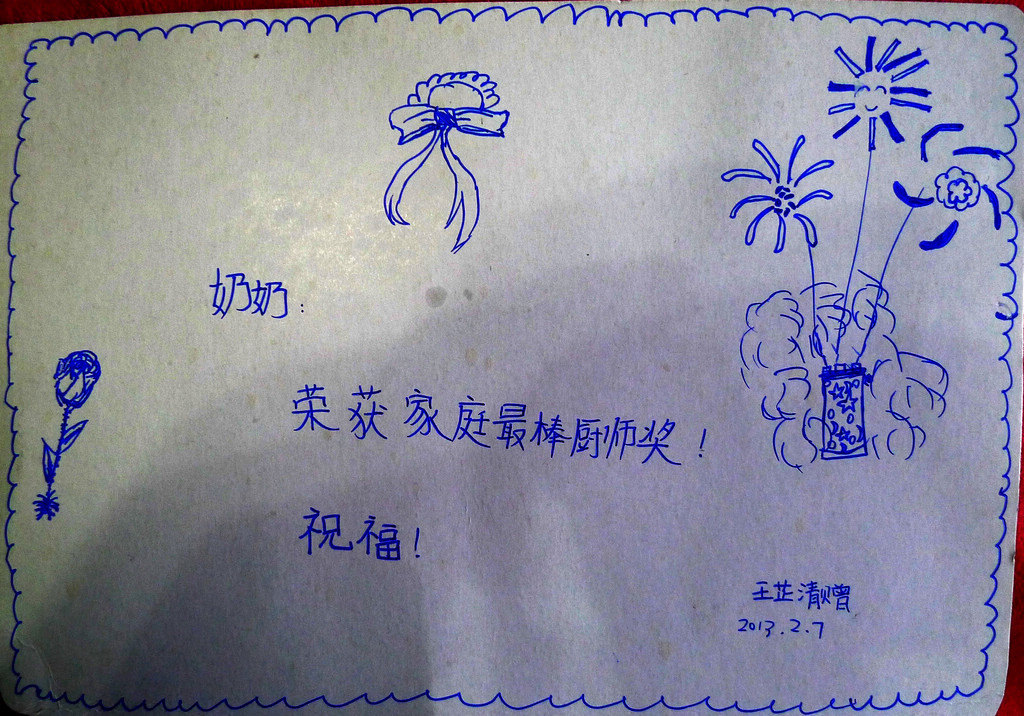 奶奶：
荣获家庭最棒厨师奖！
祝福！
王芷清赠
2013.2.7